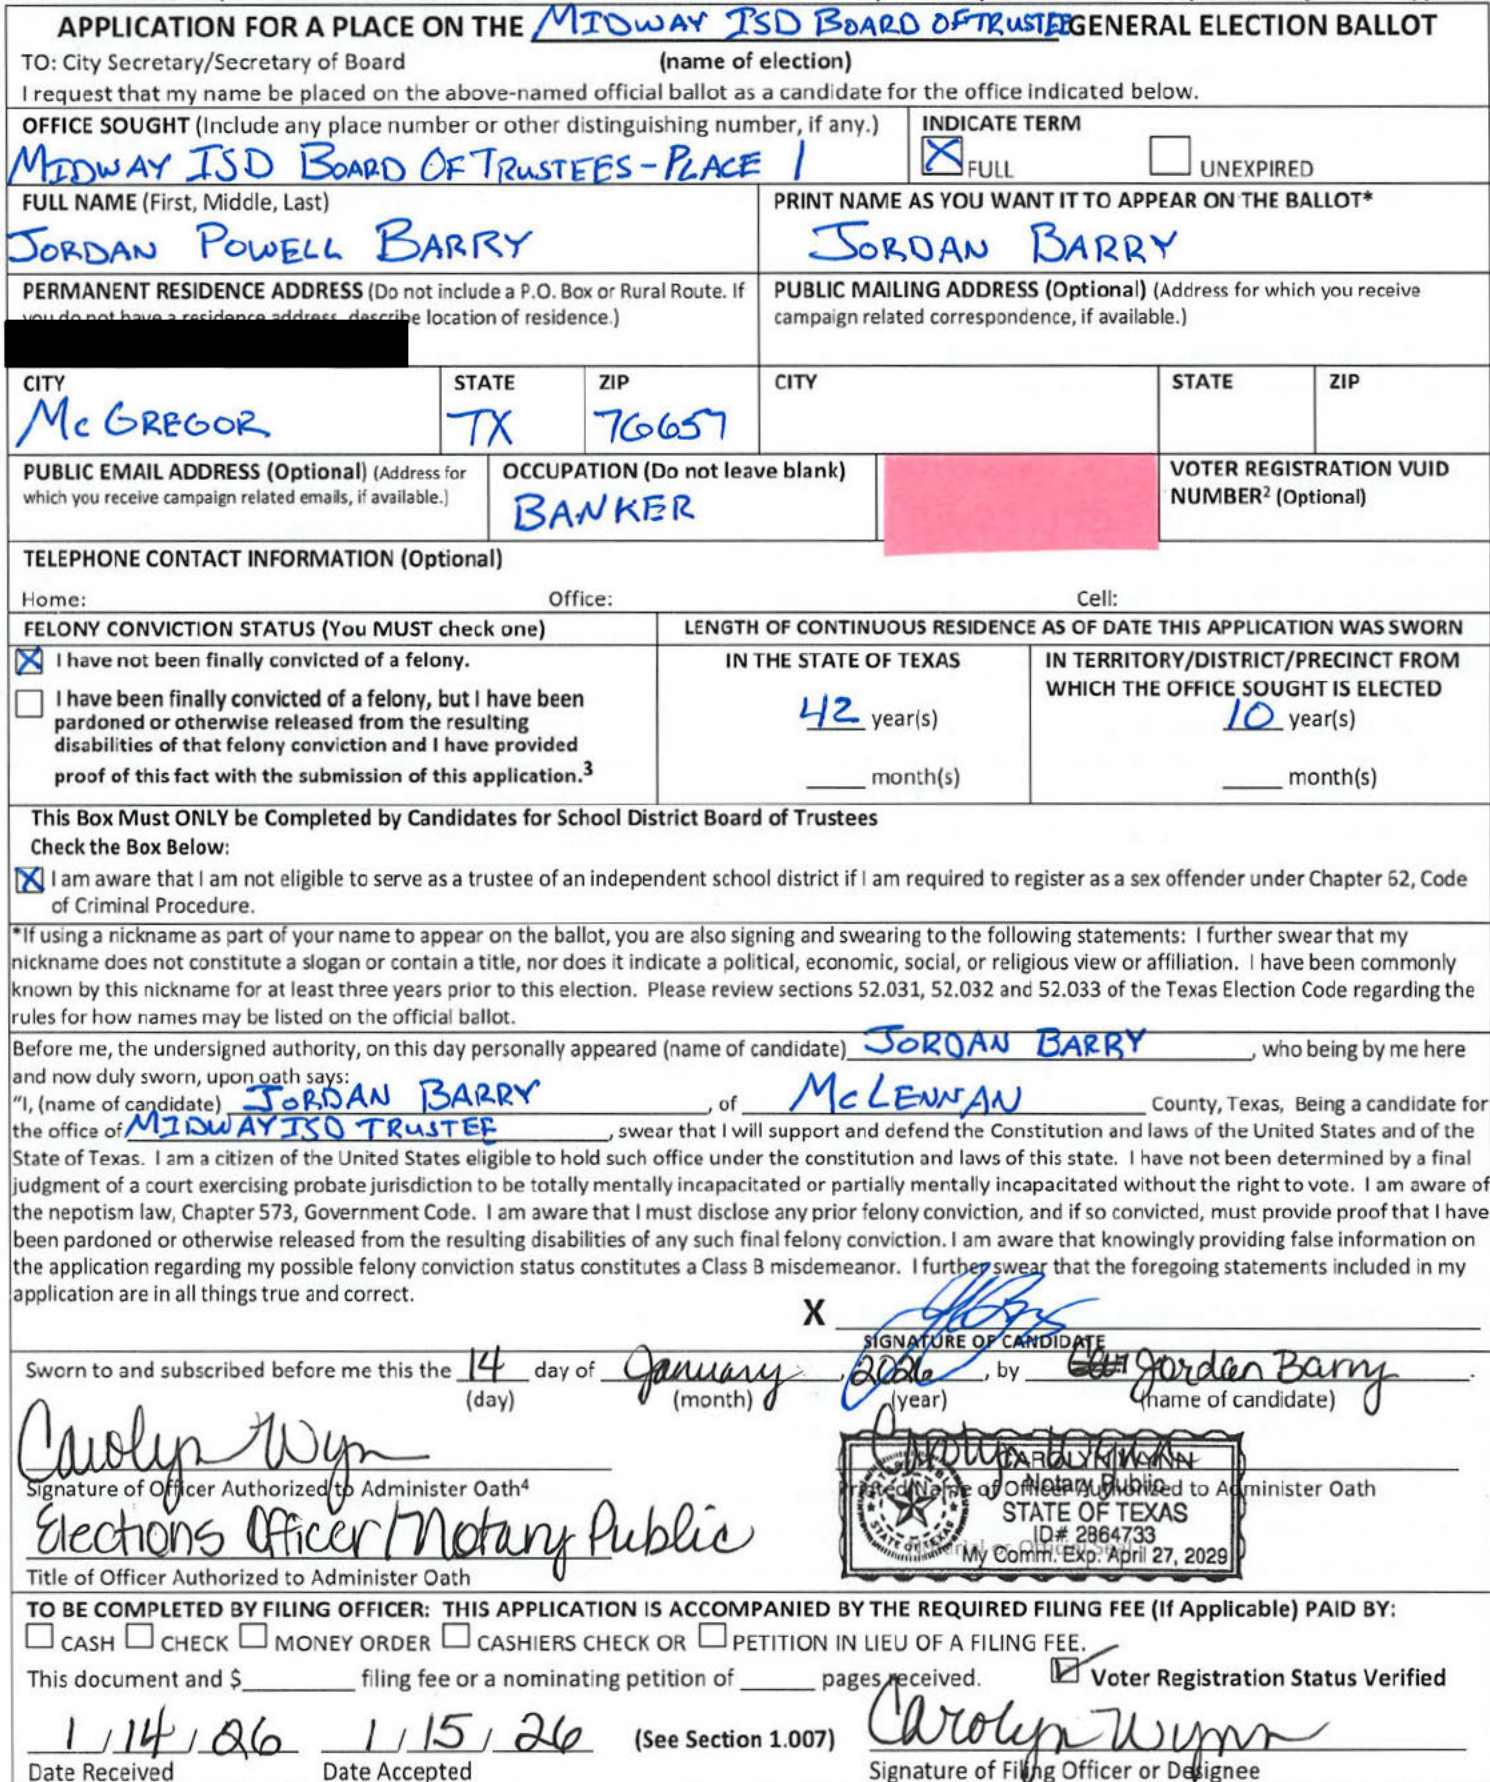 APPLICATION FOR A PLACE ON THE MIDWAY ISD BOARD OF TRUSTEE GENERAL ELECTION BALLOT
TO: City Secretary/Secretary of Board (name of election)
I request that my name be placed on the above-named official ballot as a candidate for the office indicated below.
OFFICE SOUGHT (Include any place number or other distinguishing number, if any.) INDICATE TERM
MIDWAY ISD BOARD OF TRUSTEES - PLACE 1 FULL UNEXPIRED
FULL NAME (First, Middle, Last) PRINT NAME AS YOU WANT IT TO APPEAR ON THE BALLOT*
JORDAN POWELL BARRY JORDAN BARRY
PERMANENT RESIDENCE ADDRESS (Do not include a P.O. Box or Rural Route. If PUBLIC MAILING ADDRESS (Optional) (Address for which you receive
you do not have a residence address, describe location of residence.) campaign related correspondence, if available.)
CITY STATE ZIP CITY STATE ZIP
MCGREGOR TX 76657
PUBLIC EMAIL ADDRESS (Optional) (Address for OCCUPATION (Do not leave blank) VOTER REGISTRATION VUID
which you receive campaign related emails, if available.) BANKER NUMBER² (Optional)
TELEPHONE CONTACT INFORMATION (Optional)
Home: Office: Cell:
FELONY CONVICTION STATUS (You MUST check one) LENGTH OF CONTINUOUS RESIDENCE AS OF DATE THIS APPLICATION WAS SWORN
I have not been finally convicted of a felony. IN THE STATE OF TEXAS IN TERRITORY/DISTRICT/PRECINCT FROM
WHICH THE OFFICE SOUGHT IS ELECTED
I have been finally convicted of a felony, but I have been
pardoned or otherwise released from the resulting 42 year(s) 10 year(s)
disabilities of that felony conviction and I have provided
proof of this fact with the submission of this application.³ month(s) month(s)
This Box Must ONLY be Completed by Candidates for School District Board of Trustees
Check the Box Below:
I am aware that I am not eligible to serve as a trustee of an independent school district if I am required to register as a sex offender under Chapter 62, Code
of Criminal Procedure.
*If using a nickname as part of your name to appear on the ballot, you are also signing and swearing to the following statements: I further swear that my
nickname does not constitute a slogan or contain a title, nor does it indicate a political, economic, social, or religious view or affiliation. I have been commonly
known by this nickname for at least three years prior to this election. Please review sections 52.031, 52.032 and 52.033 of the Texas Election Code regarding the
rules for how names may be listed on the official ballot.
Before me, the undersigned authority, on this day personally appeared (name of candidate) JORDAN BARRY, who being by me here
and now duly sworn, upon oath says:
"I, (name of candidate) JORDAN BARRY, of MCLENNAN County, Texas, Being a candidate for
the office of MIDWAY ISD TRUSTEE, swear that I will support and defend the Constitution and laws of the United States and of the
State of Texas. I am a citizen of the United States eligible to hold such office under the constitution and laws of this state. I have not been determined by a final
judgment of a court exercising probate jurisdiction to be totally mentally incapacitated or partially mentally incapacitated without the right to vote. I am aware of
the nepotism law, Chapter 573, Government Code. I am aware that I must disclose any prior felony conviction, and if so convicted, must provide proof that I have
been pardoned or otherwise released from the resulting disabilities of any such final felony conviction. I am aware that knowingly providing false information on
the application regarding my possible felony conviction status constitutes a Class B misdemeanor. I further swear that the foregoing statements included in my
application are in all things true and correct.
X
SIGNATURE OF CANDIDATE
Sworn to and subscribed before me this the 14 day of January, 2026, by Jordan Barry.
(day) (month) (year) (name of candidate)
Carolyn Wyn
Signature of Officer Authorized to Administer Oath⁴ Printed Name of Officer Authorized to Administer Oath
CAROLYN WYNN
Notary Public
STATE OF TEXAS
ID# 2864733
My Comm. Exp. April 27, 2029
Elections Officer/Notary Public
Title of Officer Authorized to Administer Oath
TO BE COMPLETED BY FILING OFFICER: THIS APPLICATION IS ACCOMPANIED BY THE REQUIRED FILING FEE (If Applicable) PAID BY:
CASH CHECK MONEY ORDER CASHIERS CHECK OR PETITION IN LIEU OF A FILING FEE.
This document and $ filing fee or a nominating petition of pages received. Voter Registration Status Verified
1/14/26 1/15/26 (See Section 1.007) Carolyn Wynn
Date Received Date Accepted Signature of Filing Officer or Designee